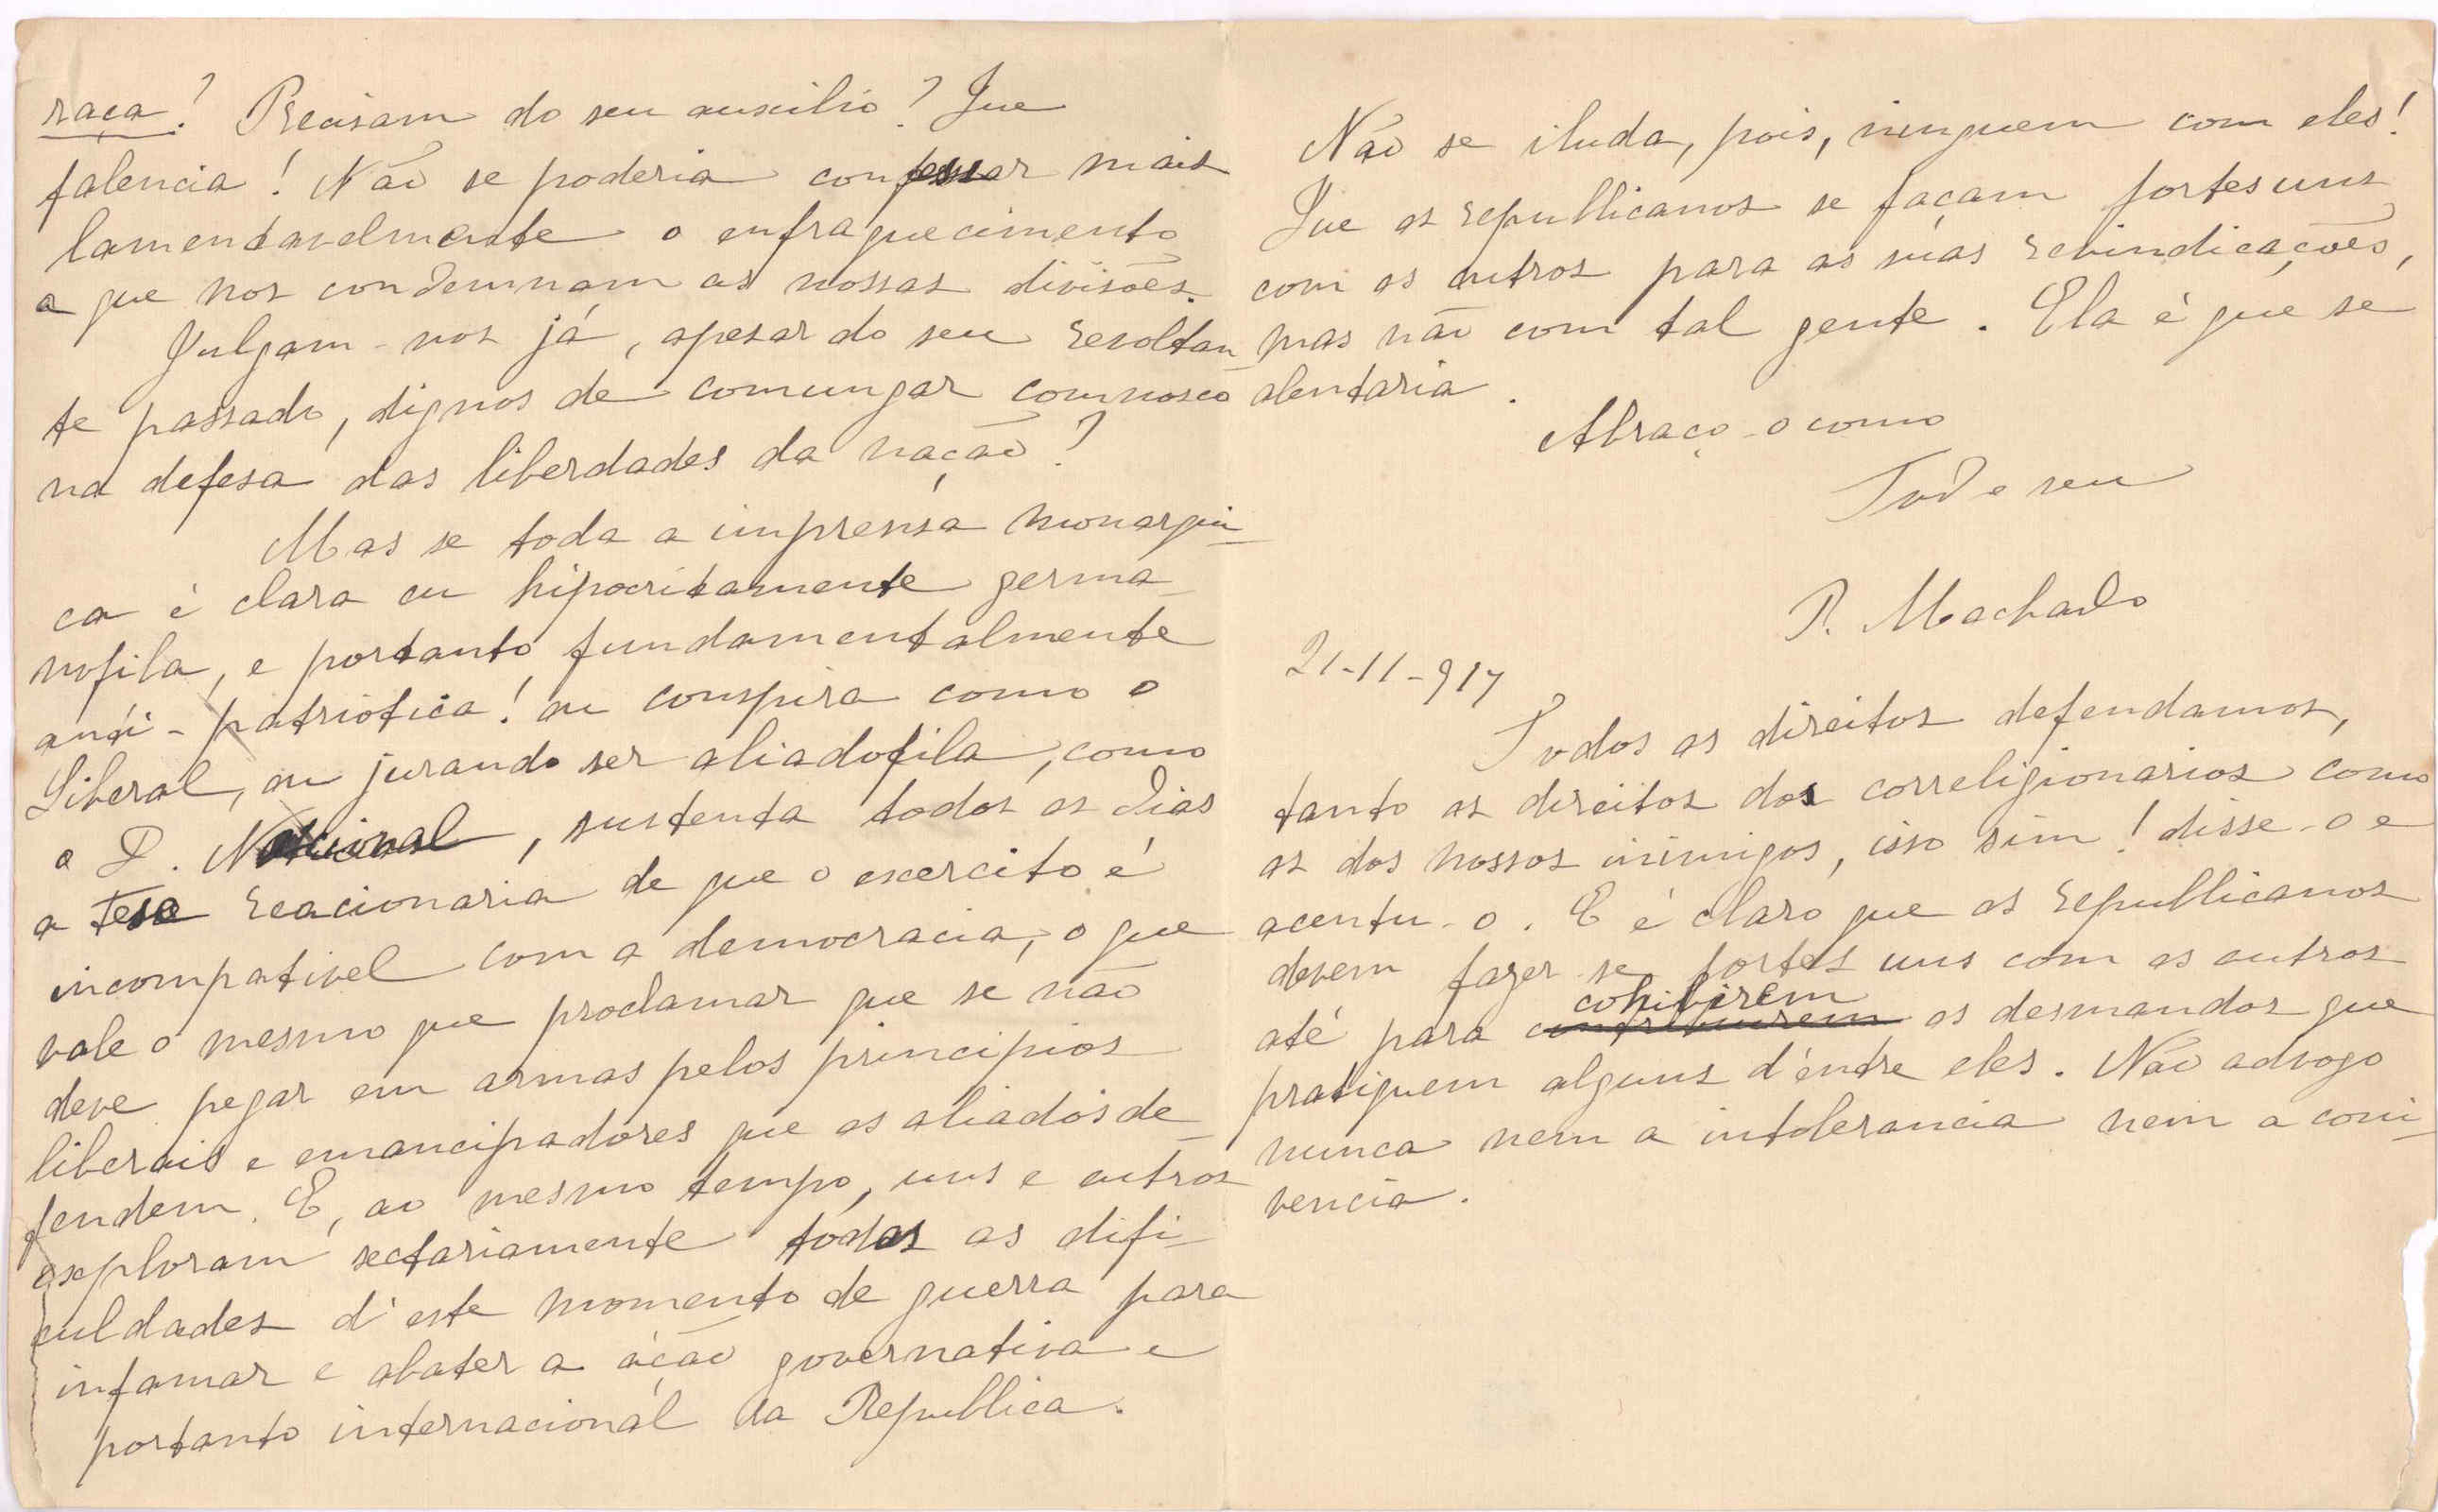 raça! Precisam do seu auxilio? Que
falencia! Não se poderia confessar mais
lamentavelmente o enfraquecimento
a que nos condemnam as nossas divisões.
Julgam-nos já, apesar do seu revoltan
te passado, dignos de comungar comnosco
na defesa das liberdades da nação?
Mas se toda a imprensa monarqui-
ca é clara ou hipocritamente germa-
nofila, e portanto fundamentalmente
anti-patriotica! ou conspira como o
Liberal, ou jurando ser aliadofila, como
o D. Nacional, sustenta todos os dias
a tese reacionaria de que o exercito é
incompativel com a democracia, o que
vale o mesmo que proclamar que se não
deve pegar em armas pelos principios
liberais e emancipadores que os aliados de-
fendem. E, ao mesmo tempo, uns e outros
exploram sectariamente todas as difi-
culdades d'este momento de guerra para
infamar e abater a ação governativa e
portanto internacional da Republica.
Não se iluda, pois, ninguem com eles!
Que os republicanos se façam fortes uns
com os outros para as suas revindicações,
mas não com tal gente. Ela é que se
alentaria.
Abraço-o como
Todo seu
B. Machado
21-11-917
Todos os direitos defendamos,
tanto os direitos dos correligionarios como
os dos nossos inimigos, isso sim! disse-o e
acentu-o. E é claro que os republicanos
devem fazer-se fortes uns com os outros
até para cohibirem os desmandos que
pratiquem alguns d'entre eles. Não advogo
nunca nem a intolerancia nem a coni-
vencia.